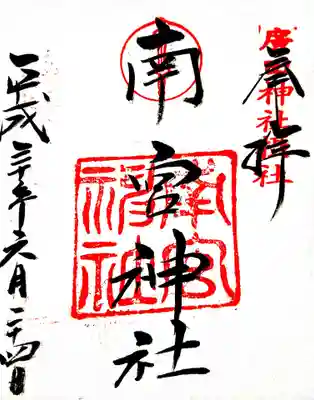 奉拝
南宮神社
南宮神社
平成三十年六月二十四日